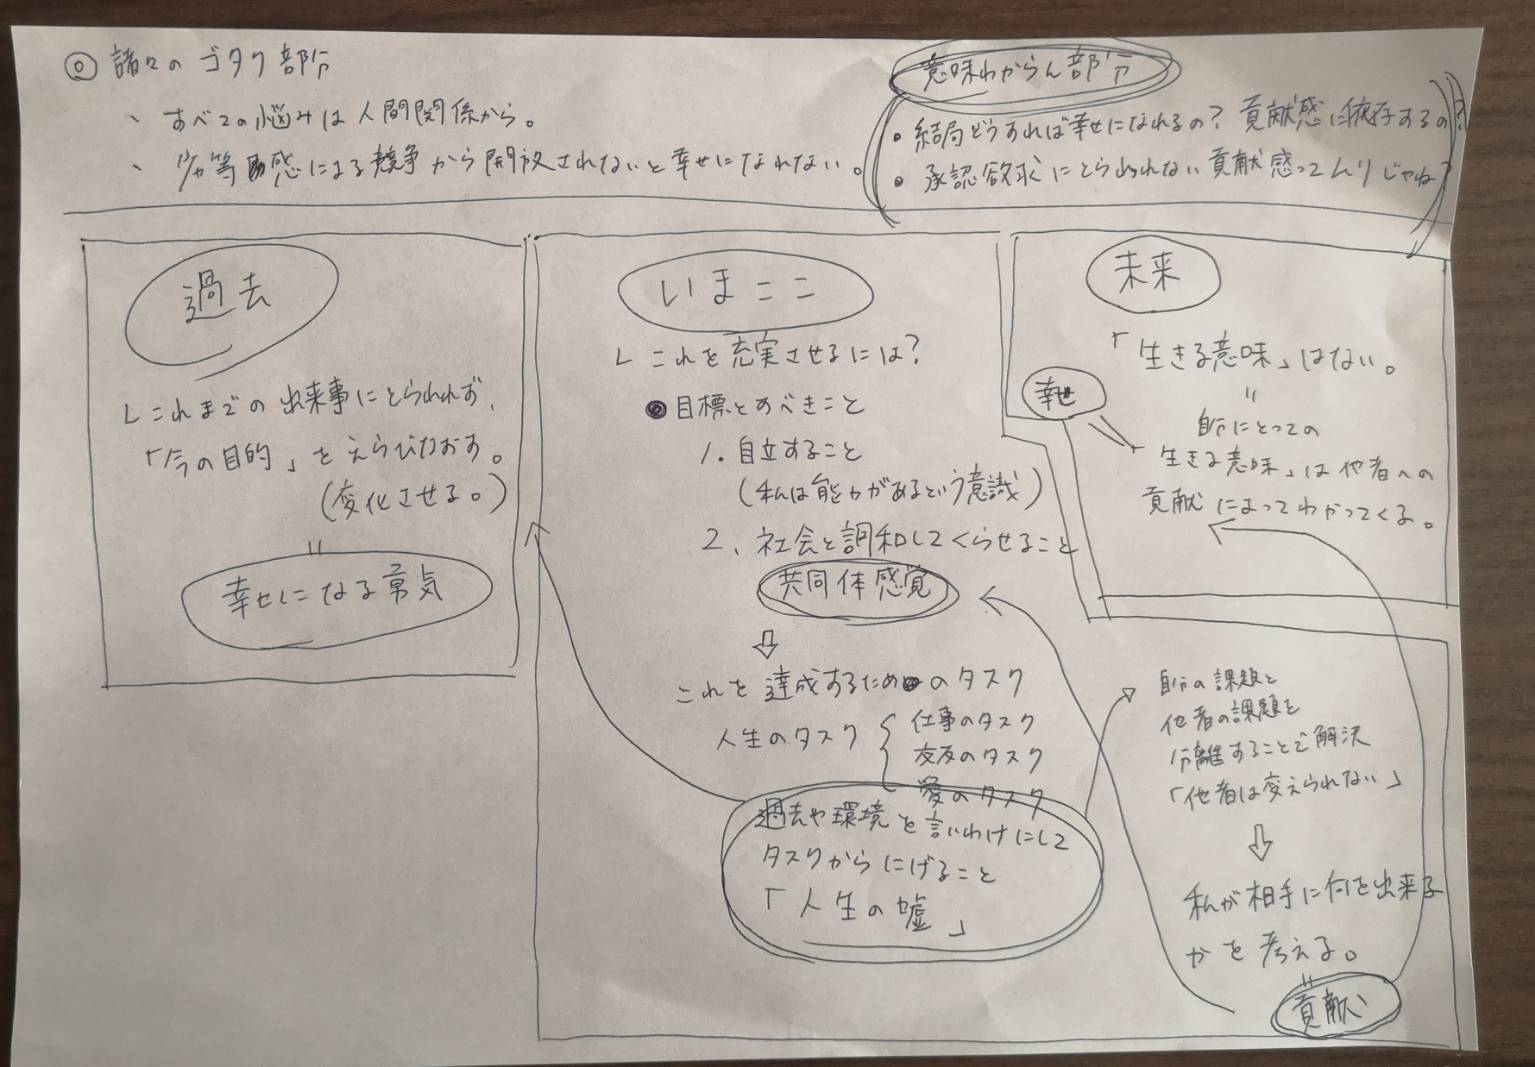 ◎ 諸々のゴタク部分
、 すべての悩みは人間関係から。
、 劣等感による競争から開放されないと幸せになれない。
意味わからん部分
• 結局どうすれば幸せになれるの？ 貢献感に依存するの？
• 承認欲求にとらわれない貢献感ってムリじゃね？
過去
L これまでの出来事にとらわれず、
「今の目的」をえらびなおす。
（変化させる。）
=
幸せになる勇気
いまここ
L これを充実させるには？
● 目標とすべきこと
1. 自立すること
（私は能力があるという意識）
2. 社会と調和してくらせること
共同体感覚
⇩
これを達成するためのタスク
人生のタスク {
仕事のタスク
交友のタスク
愛のタスク
過去や環境を言いわけにして
タスクからにげること
「人生の嘘」
未来
「生きる意味」はない。
=
幸せ
自分にとっての
「生きる意味」は他者への
貢献によってわかってくる。
自分の課題と
他者の課題を
分離することで解決
「他者は変えられない」
⇩
私が相手に何を出来る
かを考える。
=
貢献